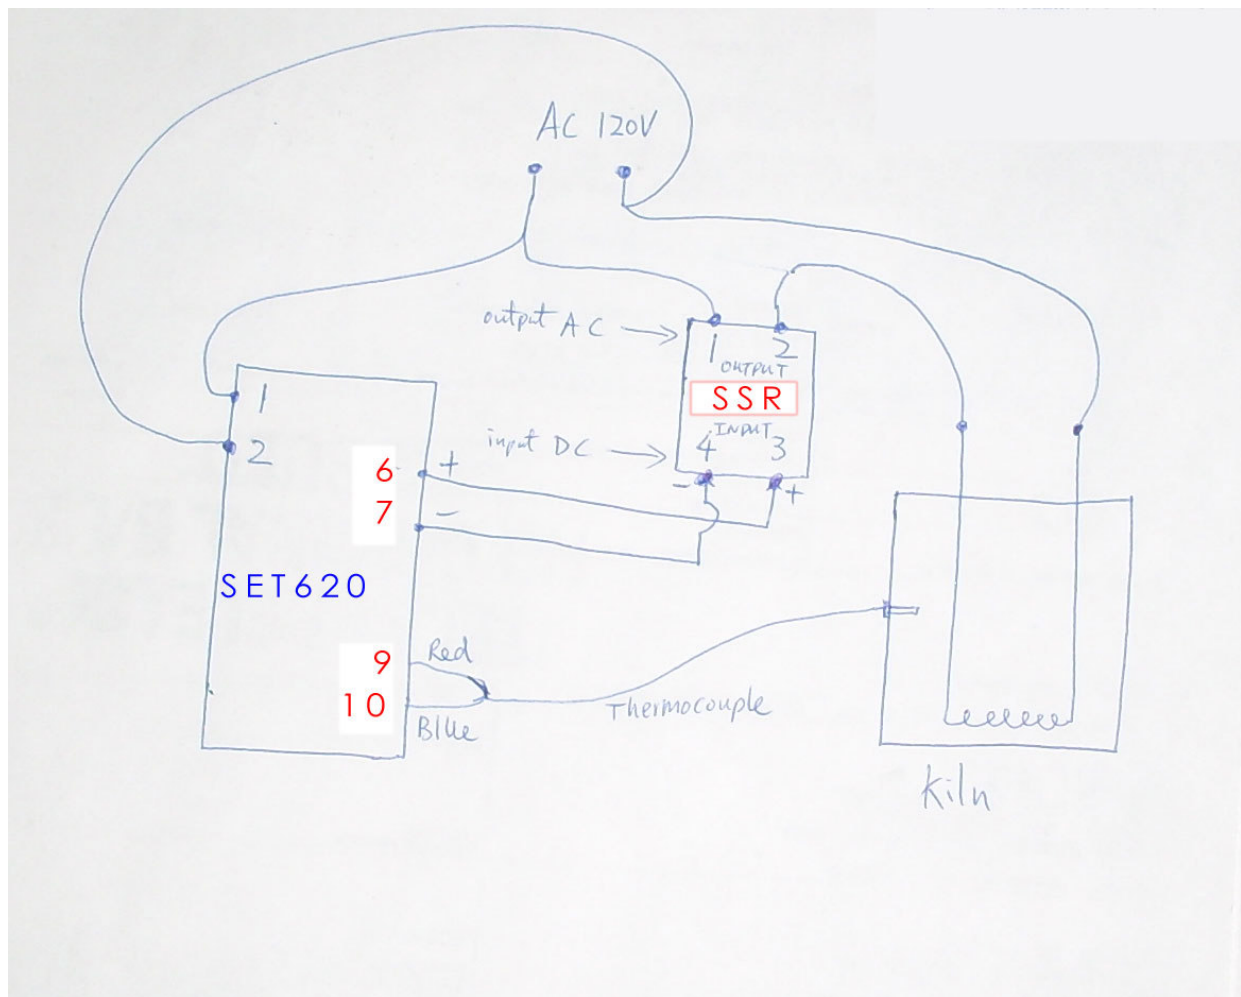 AC 120V
output AC →
1 2
OUTPUT
SSR
INPUT
input DC →
4 3
- +
1
2
6 +
7 -
SET620
9 Red
10 Blue
Thermocouple
Kiln